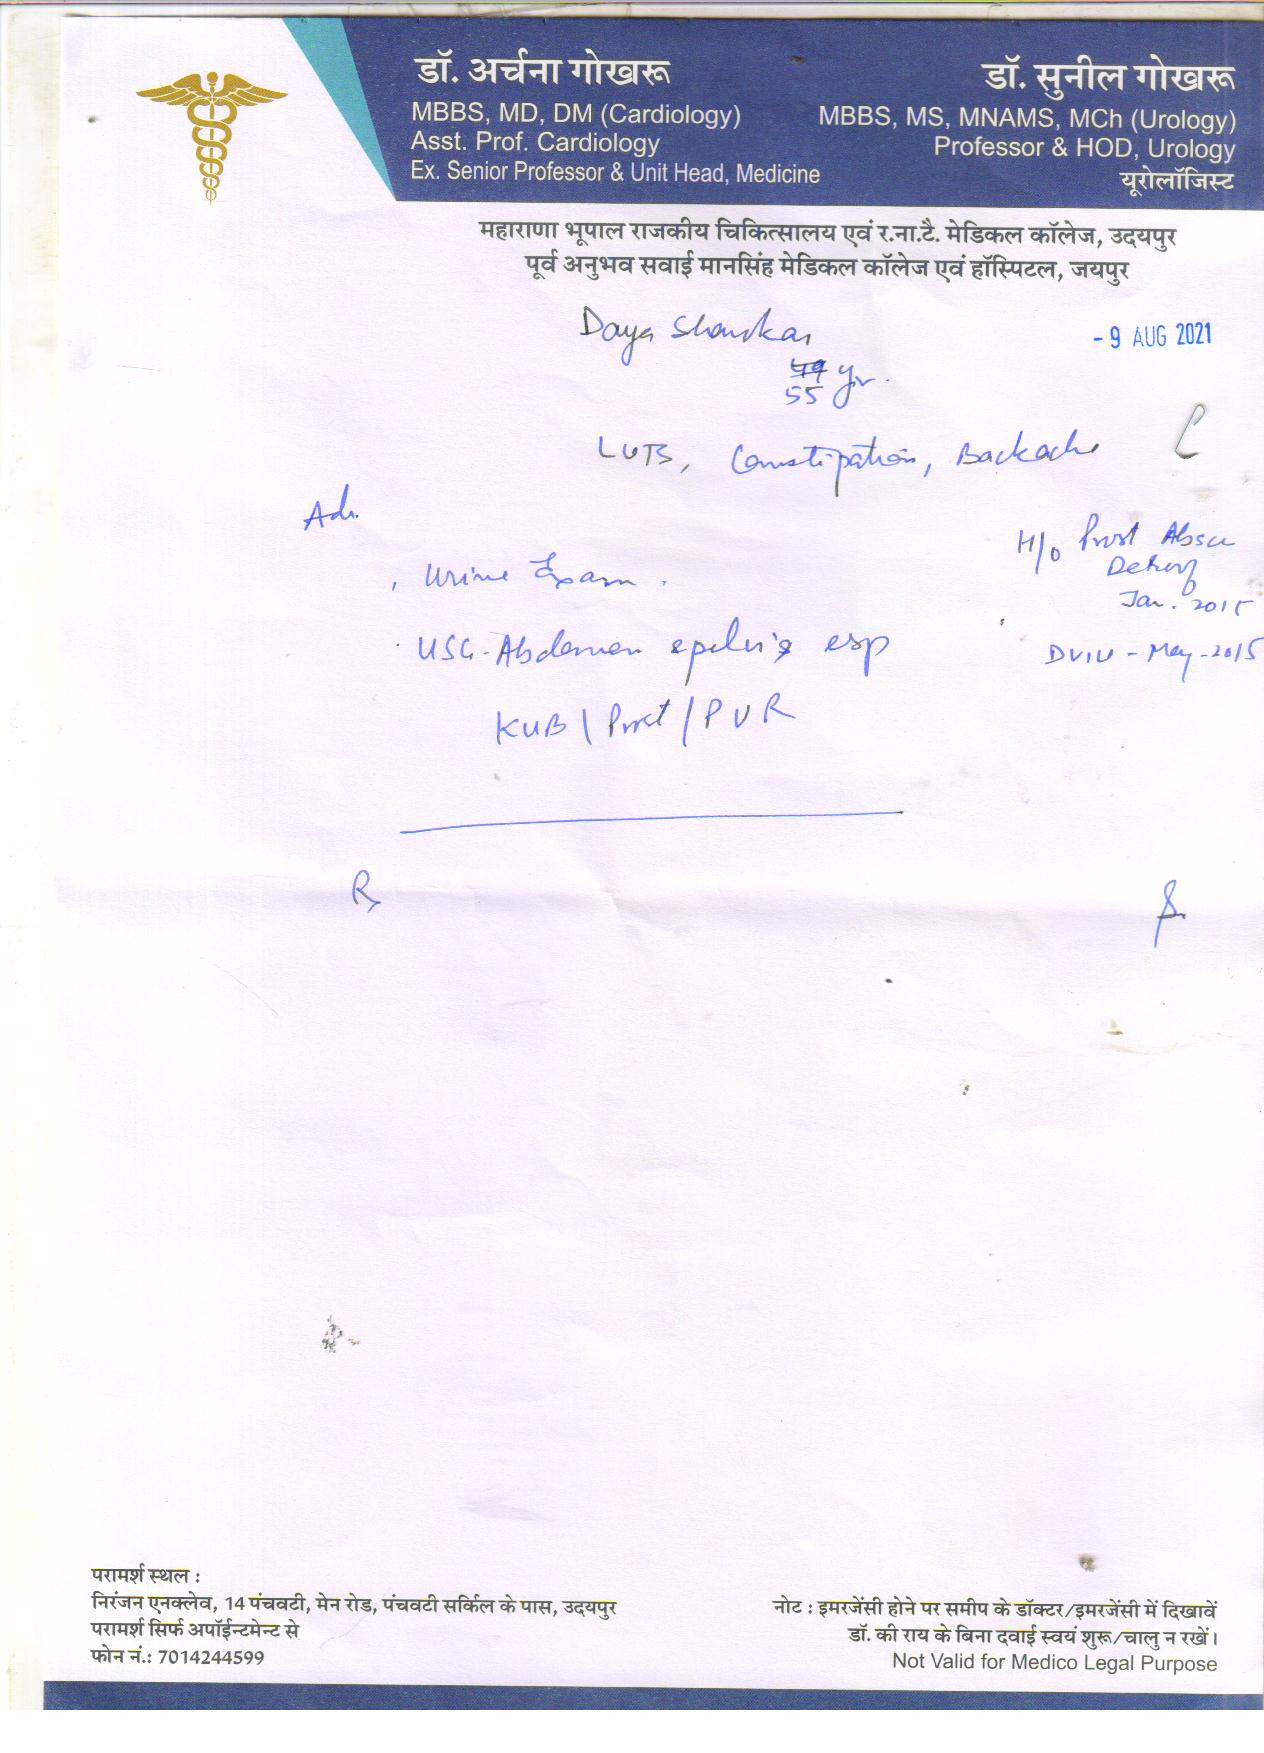 डॉ. अर्चना गोखरू
MBBS, MD, DM (Cardiology)
Asst. Prof. Cardiology
Ex. Senior Professor & Unit Head, Medicine
डॉ. सुनील गोखरू
MBBS, MS, MNAMS, MCh (Urology)
Professor & HOD, Urology
यूरोलॉजिस्ट
महाराणा भूपाल राजकीय चिकित्सालय एवं र.ना.टै. मेडिकल कॉलेज, उदयपुर
पूर्व अनुभव सवाई मानसिंह मेडिकल कॉलेज एवं हॉस्पिटल, जयपुर
Daya Shankar
- 9 AUG 2021
55 yr.
LUTS, Constipation, Backache
Adv.
H/o Prost Absce
Jan. 2015
DVIU - May - 2015
Urine Exam.
USG - Abdomen & pelvis esp
KUB / Prost / PVR
Rx
परामर्श स्थल :
निरंजन एनक्लेव, 14 पंचवटी, मेन रोड, पंचवटी सर्किल के पास, उदयपुर
परामर्श सिर्फ अपॉईन्टमेन्ट से
फोन नं.: 7014244599
नोट : इमरजेंसी होने पर समीप के डॉक्टर/इमरजेंसी में दिखावें
डॉ. की राय के बिना दवाई स्वयं शुरू/चालु न रखें।
Not Valid for Medico Legal Purpose